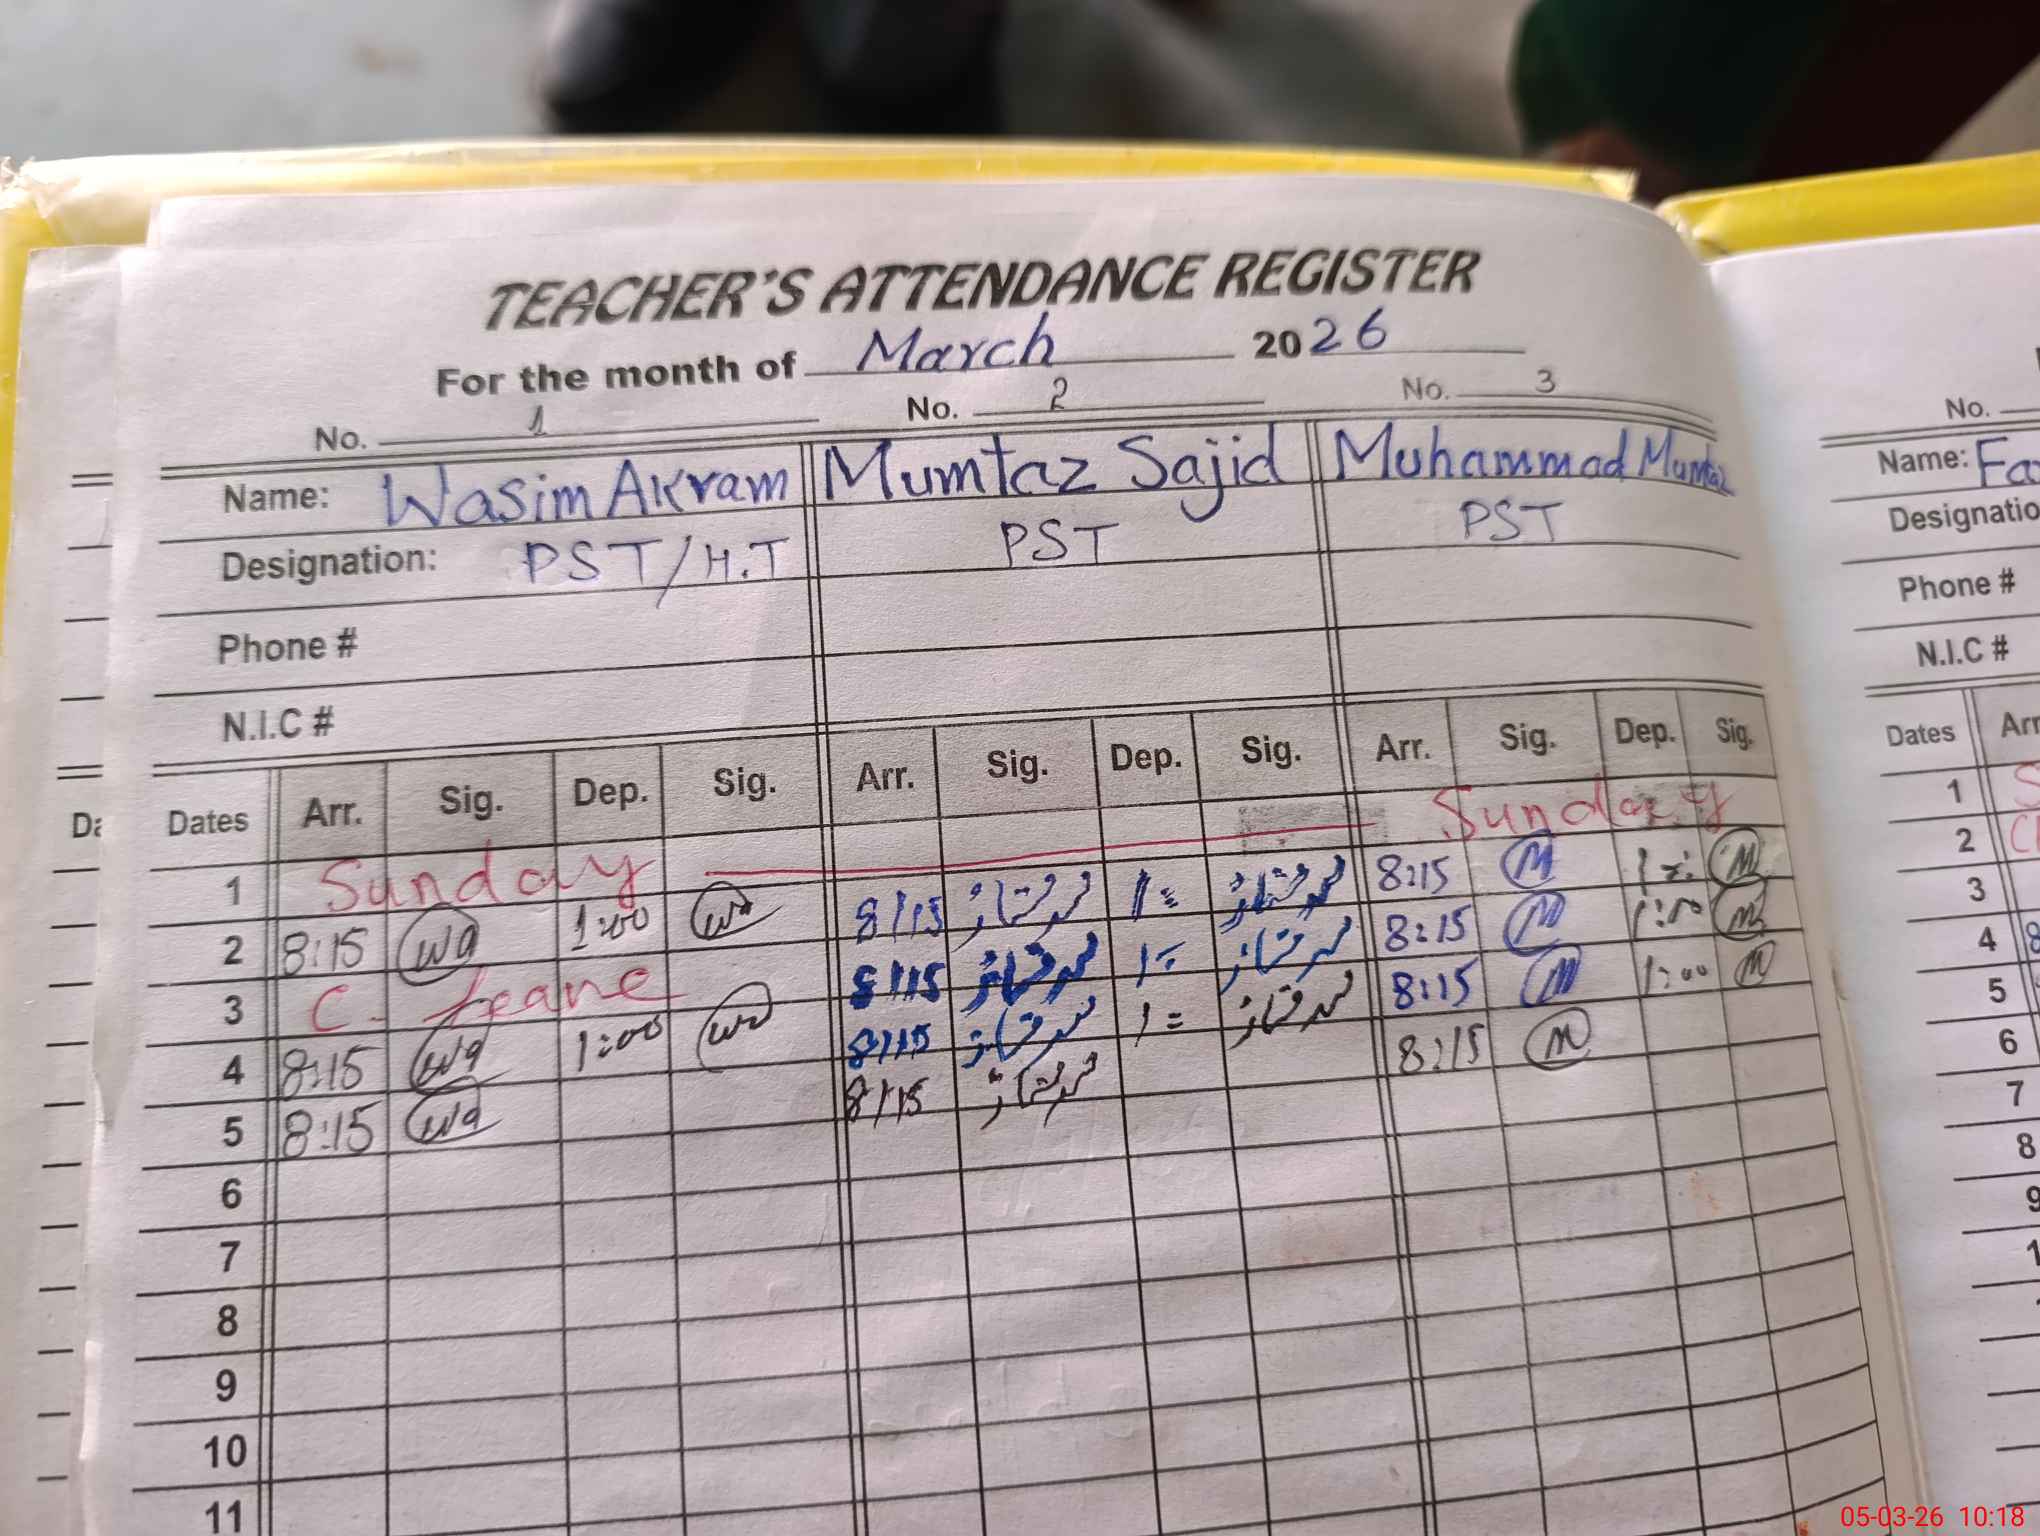 TEACHER'S ATTENDANCE REGISTER
For the month of March 2026
No. 1 No. 2 No. 3
Name: Wasim Akram Mumtaz Sajid Muhammad Mumtaz
Designation: PST/H.T PST PST
Phone #
N.I.C #
Dates Arr. Sig. Dep. Sig. Arr. Sig. Dep. Sig. Arr. Sig. Dep. Sig.
1 Sunday Sunday
2 8:15 wa 1:00 wa 8:15 1= 8:15 M M
3 C. Leave 8:15 1= 8:15 M 1:00 M
4 8:15 wa 1:00 wa 8:15 1= 8:15 M 1:00 M
5 8:15 wa 8:15 8:15 M
6
7
8
9
10
11
No.
Name: Fa
Designatio
Phone #
N.I.C #
Dates Arr
1 S
2
3
4 8
5
6
7
8
9
1
Da
05-03-26 10:18